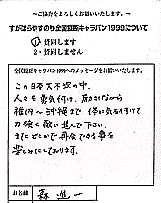 ～ご協力をよろしくお願いいたします。～
すがはらやすのり全国歌謡キャラバン1999について
1) 賛同します
2) 賛同しません
全国歌謡キャラバン1999へのメッセージをお願いいたします。
この日本大不況の中、
人々を勇気付け、励ましながら
稚内〜沖縄まで 体に気を付けて
力強く歌い進んで下さい。
またどこかで再会できる事を
楽しみにしております。
お名前
森 進一